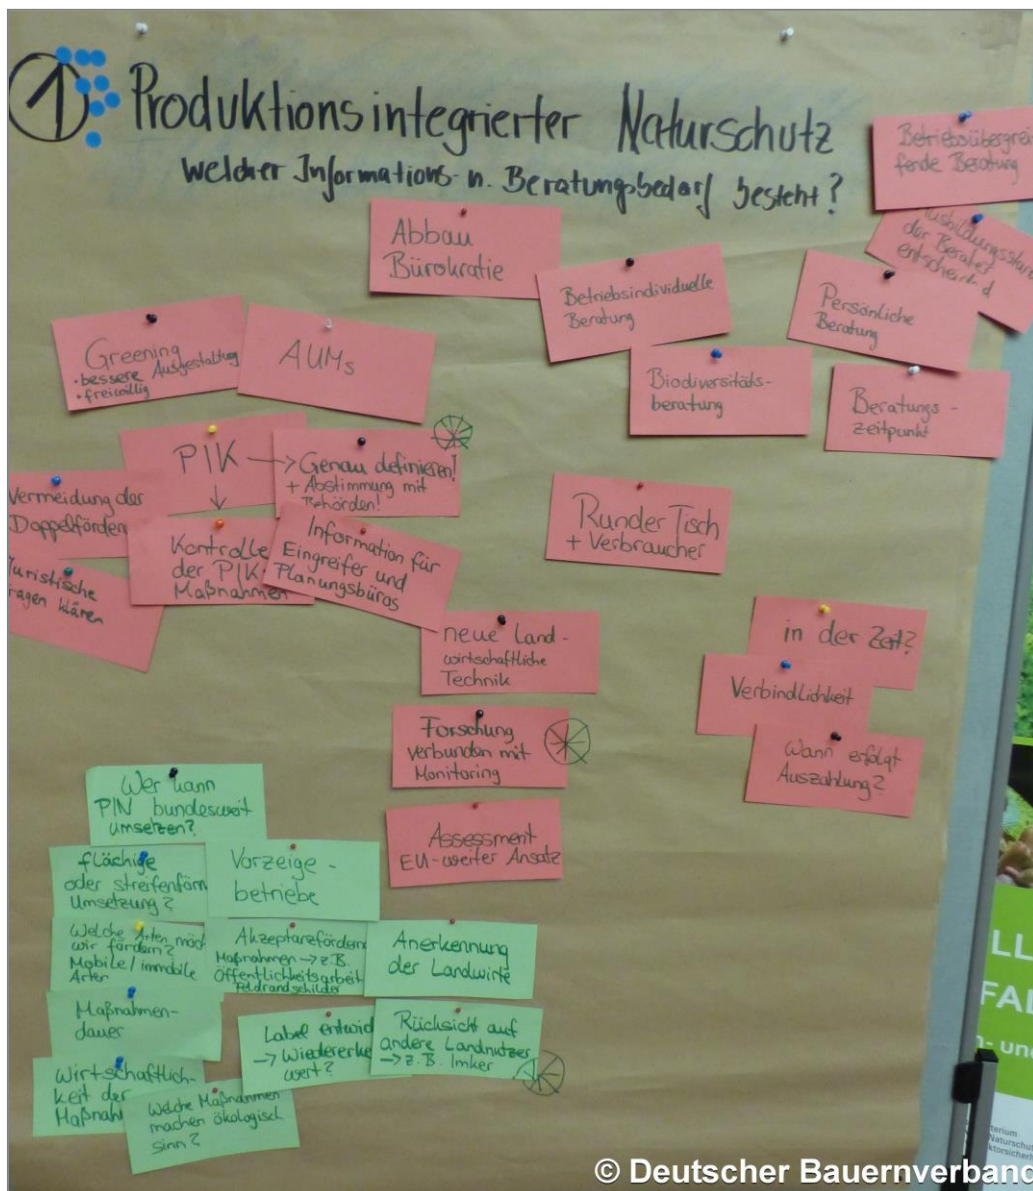 1 Produktionsintegrierter Naturschutz
Welcher Informations- u. Beratungsbedarf besteht?
Betriebsübergrei
fende Beratung
der Berater
entscheidend
Abbau
Bürokratie
Betriebsindividuelle
Beratung
Persönliche
Beratung
Biodiversitäts-
beratung
Beratungs-
zeitpunkt
Greening
• bessere Ausgestaltung
• freiwillig
AUMs
PIK
Genau definieren!
+ Abstimmung mit
Behörden!
Vermeidung der
Doppelförder
Juristische
Fragen klären
Kontrolle
der PIK-
Maßnahmen
Information für
Eingreifer und
Planungsbüros
Runder Tisch
+ Verbraucher
neue Land-
wirtschaftliche
Technik
in der Zeit?
Verbindlichkeit
Wann erfolgt
Auszahlung?
Forschung
verbunden mit
Monitoring
Assessment
EU-weiter Ansatz
Wer kann
PIN bundesweit
umsetzen?
flächige
oder streifenförm
Umsetzung?
Vorzeige-
betriebe
Welche Arten möch
wir fördern?
Mobile/immobile
Arten
Akzeptanzfördern
Maßnahmen → z.B.
Öffentlichkeitsarbeit
Feldrandschilder
Anerkennung
der Landwirte
Maßnahmen-
dauer
Label entwick
→ Wiedererke
wert?
Rücksicht auf
andere Landnutzer
→ z.B. Imker
Wirtschaftlich-
keit der
Maßnah
Welche Maßnahmen
machen ökologisch
sinn?
LL
FAL
n- und
terium
Naturschut
ktorsicherh
© Deutscher Bauernverband